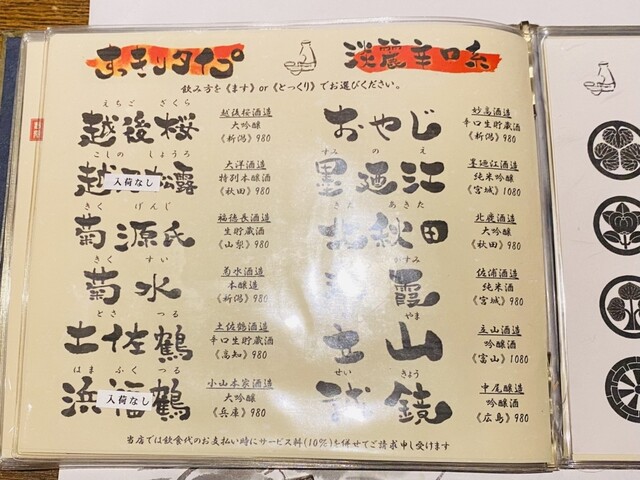 すっきりタイプ
淡麗辛口系
飲み方を《ます》or《とっくり》でお選びください。
えちご ざくら
越後桜
越後桜酒造
大吟醸
《新潟》980
こしの しょうろ
越 松露
入荷なし
大洋酒造
特別本醸造
《秋田》980
きく げんじ
菊源氏
福徳長酒造
生貯蔵酒
《山梨》980
きく すい
菊水
菊水酒造
本醸造
《新潟》980
とさ つる
土佐鶴
土佐鶴酒造
辛口生貯蔵酒
《高知》980
はま ふく つる
浜福鶴
入荷なし
小山本家酒造
大吟醸
《兵庫》980
おやじ
妙高酒造
辛口生貯蔵酒
《新潟》980
すみ の え
墨廼江
墨廼江酒造
純米吟醸
《宮城》1080
きた あきた
北秋田
北鹿酒造
大吟醸
《秋田》980
がすみ
霞
佐浦酒造
純米酒
《宮城》980
やま
立山
立山酒造
吟醸酒
《富山》1080
せい きょう
誠鏡
中尾醸造
吟醸酒
《広島》980
当店では飲食代のお支払い時にサービス料(10%)を併せてご請求申し受けます